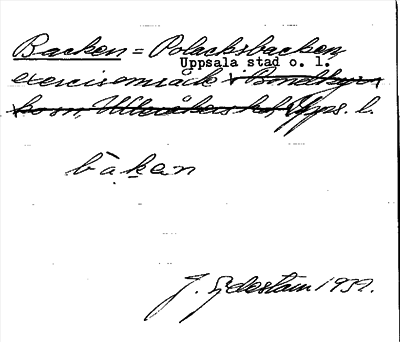 Backen = Polacksbacken,
Uppsala stad o. l.
exercisområde i Bondkyr-
ko sn, Ulleråkers hd, Upps. l.
bàkan
J. Sjdestam 1937.